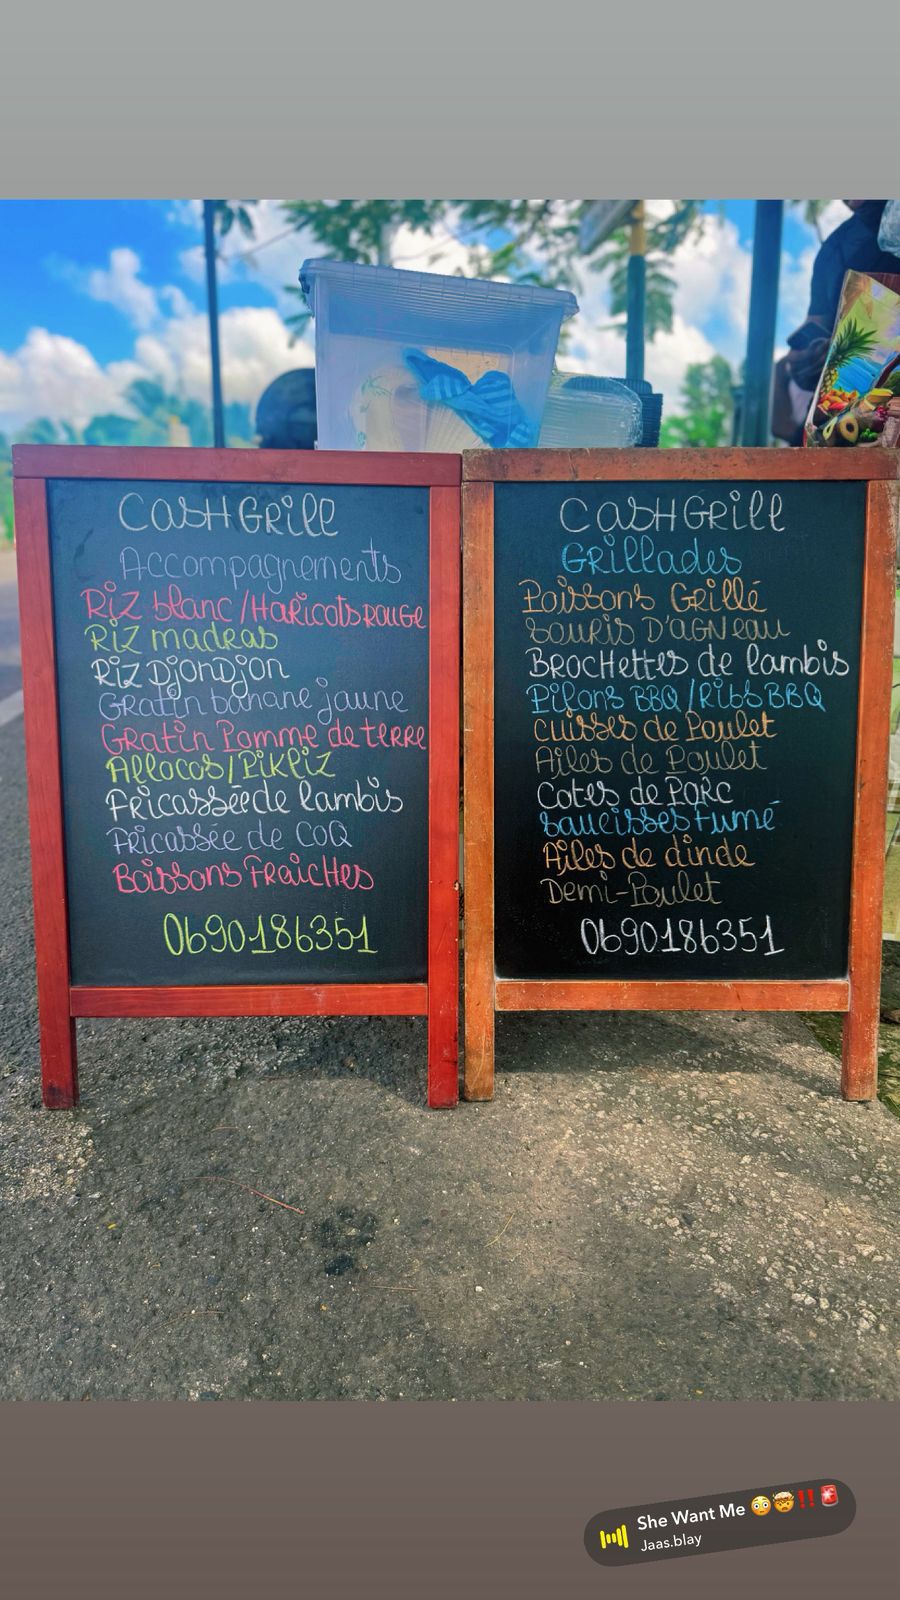 CASH GRill
Accompagnements
Riz blanc/HaRicots ROUGE
Riz madras
Riz Djondjon
Gratin banane jaune
GRatin Pomme de terre
Allocos/Pikliz
FRicassée de lambis
FRicassée de COQ
Boissons FRaicHes
0690186351
CASH GRill
GRillades
Poissons GRillé
SOURIS D'AGNeau
BROCHettes de lambis
Pilons BBQ/Ribs BBQ
Cuisses de Poulet
Ailes de Poulet
Cotes de PORC
Saucisses Fumé
Ailes de dinde
Demi-Poulet
0690186351
She Want Me 😳🤯‼️🚨
Jaas.blay